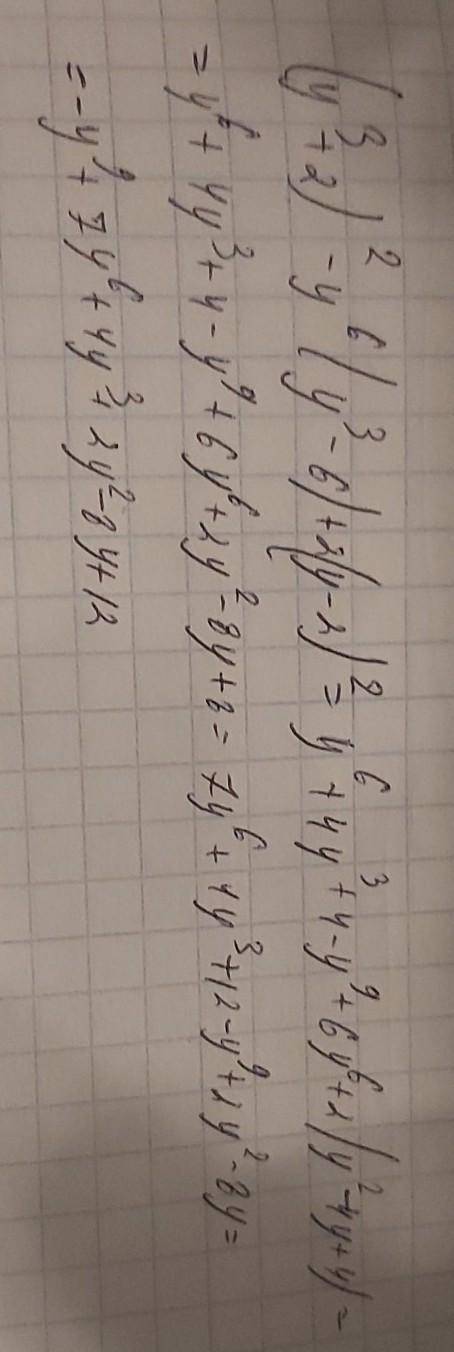 (y³+2)² - y⁶(y³-6)+2(y-2)² = y⁶+4y³+4-y⁹+6y⁶+2(y²-4y+4) =
= y⁶+4y³+4-y⁹+6y⁶+2y²-8y+8 = 7y⁶+4y³+12-y⁹+2y²-8y =
= -y⁹+7y⁶+4y³+2y²-8y+12